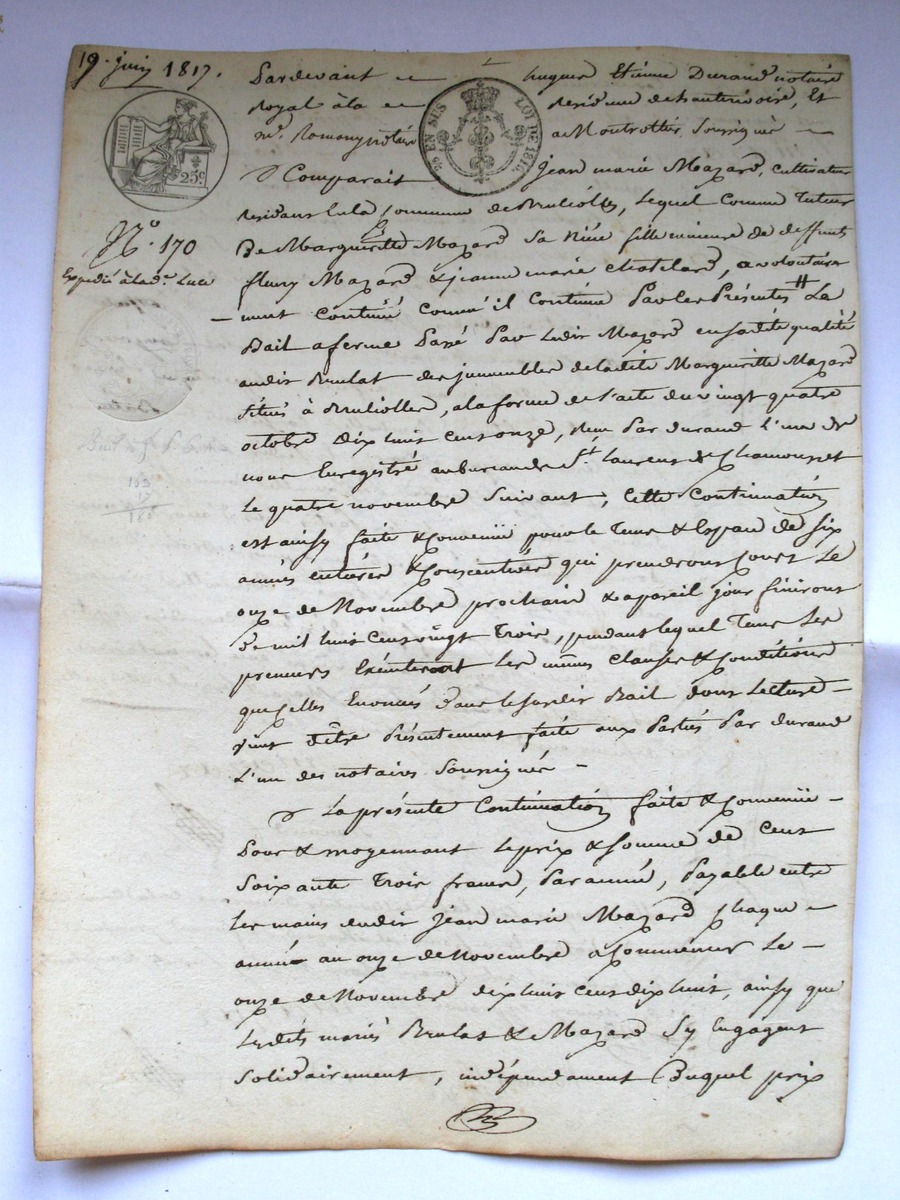 19. juin 1817.
Pardevant hugues Etienne Durand notaire
Royal à la Residence de hauterivoire, Et
me. Romany notaire a Montrottier, Soussignés
25 EN SUS LOI DE 1816.
25c
Comparait Jean marie Mazard, cultivateur
residant en la Commune de Brulioles, lequel Comme tuteur
De Margueritte Mazard Sa Niéce fille mineure de deffunts
fleury Mazard & jeanne marie Chatelard, a volontaire
No. 170
Expedié à la de. Luce
ment Continué comme il Continue Par les Présentes # Le
Bail a ferme Passé Par Ledit Mazard en sadite qualité
audit Brulat des immeubles de ladite Margueritte Mazard
situés à Brulioles, a la forme de l'acte du vingt quatre
octobre Dix huit cent onze, Reçu Par durand l'un de
nous Enregistré au bureau de St. Laurent de Chamousset
Le quatre novembre Suivant, Cette Continuation
est ainsy faite & Convenüe pour le Tems & Espace de six
années entieres & Consecutives qui prendront Cours Le
onze de Novembre prochain & a pareil jour finiront
De mil huit Cent vingt Trois, pendant lequel Tems Les
preneurs Executeront Les mêmes Clauses & Conditions
que Celles Enoncés Dans le susdit Bail dont Lecture
vient d'être Présentement faite aux Parties Par durand
L'un des notaires Soussignés
La présente Continuation faite & Convenüe
Pour & moyennant le prix & somme de Cent
Soixante Trois francs, Par année, Payable entre
Les mains dudit Jean marie Mazard Chaque
année au onze de Novembre a Commencer Le
onze de Novembre dix huit Cent dix huit, ainsy que
Lesdits mariés Brulat & Mazard S'y Engagent
Solidairement, indépendament Duquel prix